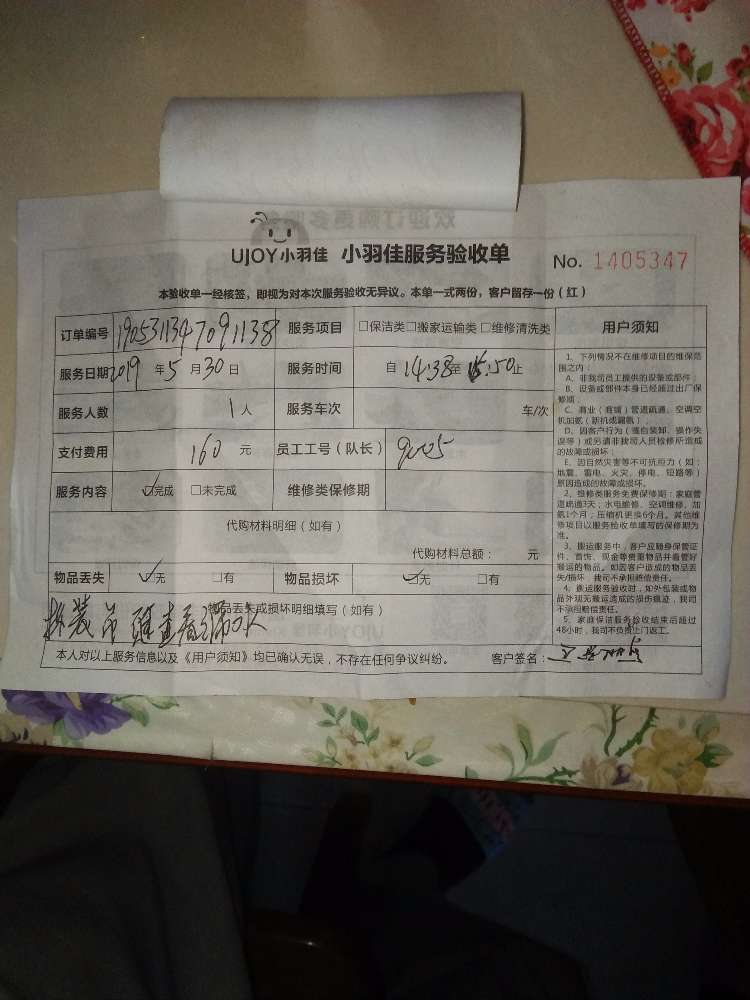 UJOY小羽佳 小羽佳服务验收单 No. 1405347
本验收单一经核签，即视为对本次服务验收无异议。本单一式两份，客户留存一份（红）
订单编号 1905311347091138 服务项目 □保洁类□搬家运输类□维修清洗类
服务日期 2019 年 5 月 30 日 服务时间 自 14:38 至 15:50 止
服务人数 1 人 服务车次 车/次
支付费用 160 元 员工工号（队长） 9005
服务内容 ☑完成 □未完成 维修类保修期
代购材料明细（如有）
代购材料总额： 元
物品丢失 ☑无 □有 物品损坏 ☑无 □有
物品丢失或损坏明细填写（如有）
拆装吊 查看漏水
本人对以上服务信息以及《用户须知》均已确认无误，不存在任何争议纠纷。 客户签名：
用户须知
1、下列情况不在维修项目的维保范
围之内：
A、非我司员工提供的设备或部件；
B、设备或部件本身已经超过出厂保
修期；
C、商业（商铺）管道疏通、空调空
机加氨（新机或漏氨）；
D、因客户行为（擅自装卸、操作失
误等）或另请非我司人员检修所造成
的故障或损坏；
E、因自然灾害等不可抗拒力（如：
地震、雷电、火灾、停电、短路等）
原因造成的故障或损坏。
2、维修类服务免费保修期：家庭管
道疏通3天；水电维修、空调维修、加
氨1个月；压缩机更换6个月。其他维
修项目以服务验收单填写的保修期为
准。
3、搬运服务中，客户应随身保管证
件、首饰、现金等贵重物品并看管好
搬运的物品。如因客户造成的物品丢
失/损坏，我司不承担赔偿责任。
4、搬运服务验收时，如外包装或物
品外观无搬运造成的损伤痕迹，我司
不承担赔偿责任。
5、家庭保洁服务验收结束后超过
48小时，我司不负责上门返工。